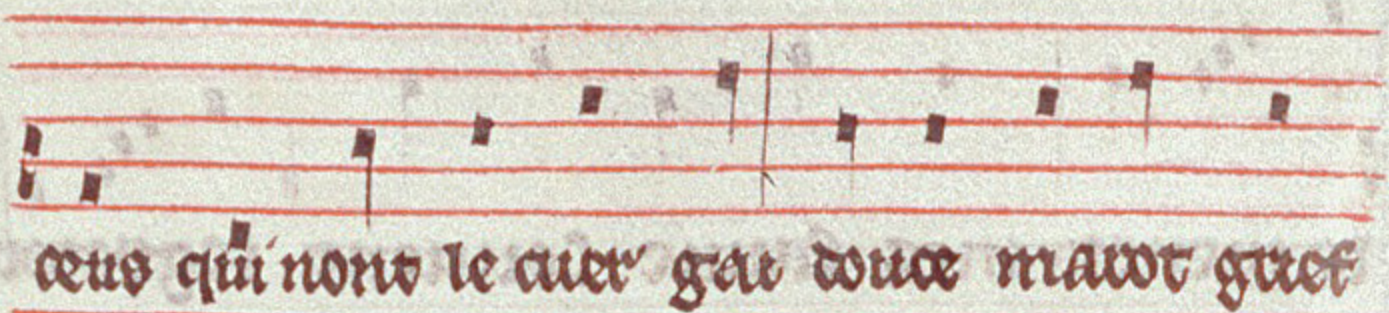 ceus qui nont le cuer gai douce marot grief